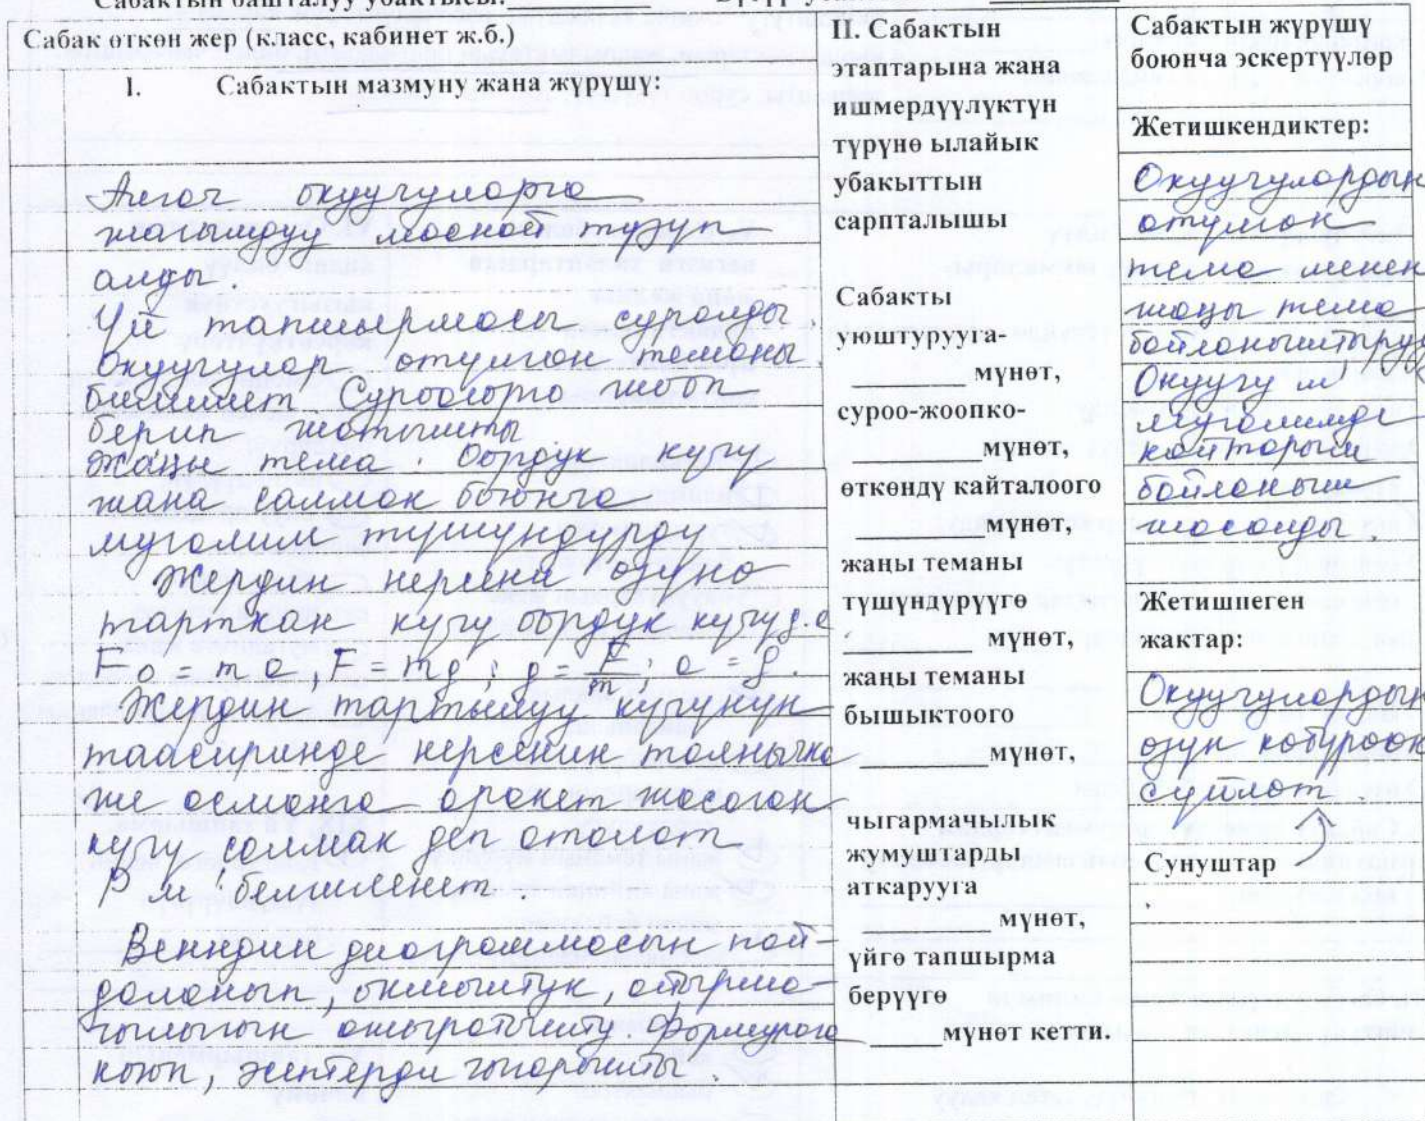 Сабактын башталуу убактысы:
Сабак өткөн жер (класс, кабинет ж.б.)
I. Сабактын мазмуну жана жүрүшү:
Алгач окуучуларга
жагымдуу маанай түзүп
алды.
Үй тапшырмасы суралды.
Окуучулар өтүлгөн теманы
билишет Суроолорго жооп
берип жатышты.
Жаңы тема. Оордук күчү
жана салмак боюнча
мугалим түшүндүрдү
Жердин нерсени өзүнө
тарткан күчү оордук күчү д.а
Fo = m a, F = mg; g = F/m; a = g.
Жердин тартылуу күчүнүн
таасиринде нерсенин таянычка
же асмонго аракет жасаган
күчү салмак деп аталат
P м белгиленет.
Венндин диограммасын пай-
доланып, окшоштук, айырма-
чылыгын ажыратышты. Формулага
коюп, эсептерди чыгарышты.
II. Сабактын
этаптарына жана
ишмердүүлүктүн
түрүнө ылайык
убакыттын
сарпталышы
Сабакты
уюштурууга-
______ мүнөт,
суроо-жоопко-
______ мүнөт,
өткөндү кайталоого
______мүнөт,
жаңы теманы
түшүндүрүүгө
______ мүнөт,
жаңы теманы
бышыктоого
______мүнөт,
чыгармачылык
жумуштарды
аткарууга
______ мүнөт,
үйгө тапшырма
берүүгө
______мүнөт кетти.
Сабактын жүрүшү
боюнча эскертүүлөр
Жетишкендиктер:
Окуучулардын
өтүлмөк
тема менен
жаңы тема
байланыштыруу
Окуучу м
мугалимде
кайтарым
байланыш
жасалды.
Жетишпеген
жактар:
Окуучулардын
өзүн көбүрөөк
сүйлөт.
Сунуштар